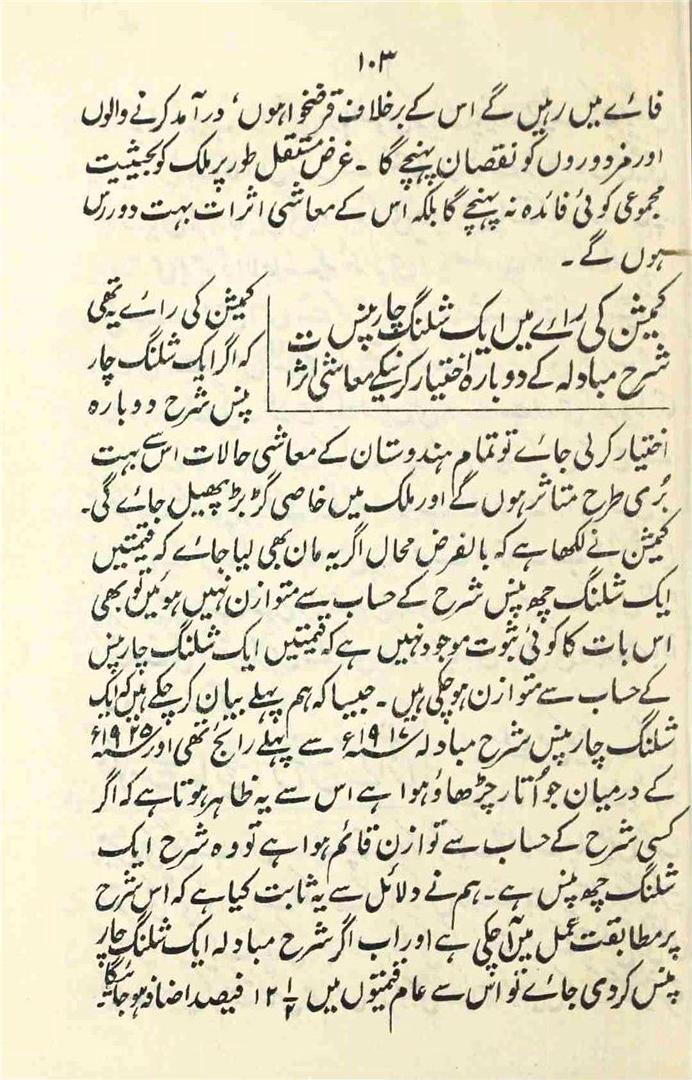 ۱۰۳
فائے میں رہیں گے اس کے برخلاف قرضخواہوں‘ درآمد کرنے والوں
اور مزدوروں کو نقصان پہنچے گا ۔ غرض مستقل طور پر ملک کو بحیثیت
مجموعی کوئی فائدہ نہ پہنچے گا بلکہ اس کے معاشی اثرات بہت دوررس
ہوں گے ۔
کمیشن کی رائے میں ایک شلنگ چار پنس
شرح مبادلہ کے دوبارہ اختیار کرنیکے معاشی اثرات
کمیشن کی رائے یہ تھی
کہ اگر ایک شلنگ چار
پنس شرح دوبارہ
اختیار کرلی جائے تو تمام ہندوستان کے معاشی حالات اس سے بہت
بُری طرح متاثر ہوں گے اور ملک میں خاصی گڑبڑ پھیل جائے گی۔
کمیشن نے لکھا ہے کہ بالفرض محال اگر یہ مان بھی لیا جائے کہ قیمتیں
ایک شلنگ چھ پنس شرح کے حساب سے متوازن نہیں ہوئیں تو بھی
اس بات کا کوئی ثبوت موجود نہیں ہے کہ قیمتیں ایک شلنگ چار پنس
کے حساب سے متوازن ہوچکی ہیں ۔ جیسا کہ ہم پہلے بیان کرچکے ہیں کہ ایک
شلنگ چار پنس شرح مبادلہ ۱۹۱۷ء سے پہلے رائج تھی اور ۱۹۲۵ء
کے درمیان جو اُتار چڑھاؤ ہوا ہے اس سے یہ ظاہر ہوتا ہے کہ اگر
کسی شرح کے حساب سے توازن قائم ہوا ہے تو وہ شرح ایک
شلنگ چھ پنس ہے ۔ ہم نے دلائل سے یہ ثابت کیا ہے کہ اس شرح
پر مطابقت عمل میں آچکی ہے اور اب اگر شرح مبادلہ ایک شلنگ چار
پنس کردی جائے تو اس سے عام قیمتوں میں ۱۲ ۱/۲ فیصد اضافہ ہوجائیگا۔